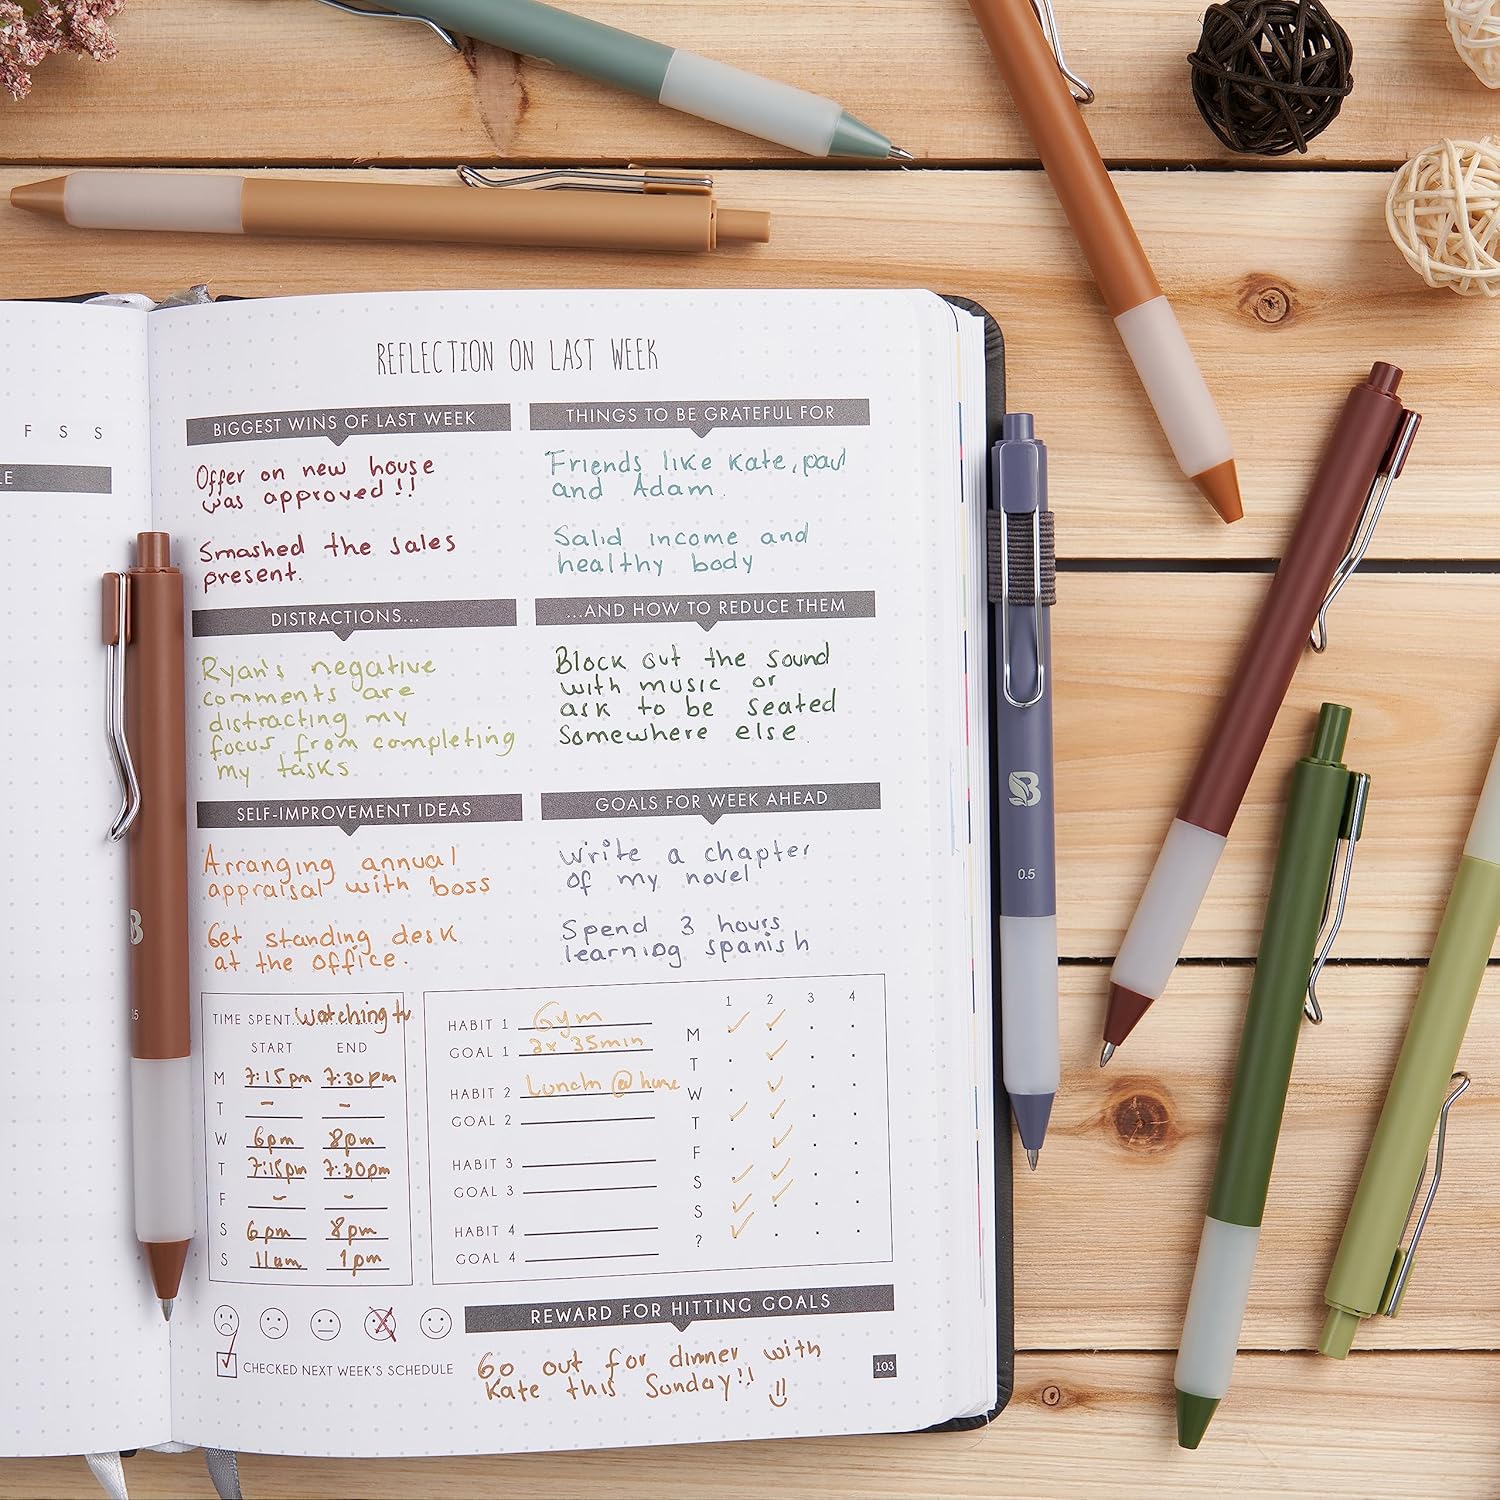 F S S
LE
REFLECTION ON LAST WEEK
BIGGEST WINS OF LAST WEEK
Offer on new house
was approved!!
Smashed the sales
present.
THINGS TO BE GRATEFUL FOR
Friends like Kate, paul
and Adam.
Salid income and
healthy body
DISTRACTIONS...
Ryan's negative
comments are
distracting my
focus from completing
my tasks
...AND HOW TO REDUCE THEM
Block out the sound
with music or
ask to be seated
somewhere else
SELF-IMPROVEMENT IDEAS
Arranging annual
appraisal with boss
Get standing desk
at the office.
GOALS FOR WEEK AHEAD
Write a chapter
of my novel
Spend 3 hours
learning spanish
TIME SPENT... watching tv
START END
M 7:15pm 7:30pm
T - -
W 6pm 8pm
T 7:15pm 7:30pm
F - -
S 6pm 8pm
S 11am 1pm
HABIT 1 Gym
GOAL 1 3x 35min
HABIT 2 Lunch @ home
GOAL 2
HABIT 3
GOAL 3
HABIT 4
GOAL 4
1 2 3 4
M
T
W
T
F
S
S
?
CHECKED NEXT WEEK'S SCHEDULE
REWARD FOR HITTING GOALS
Go out for dinner with
Kate this Sunday!!
103
B
.5
B
0.5